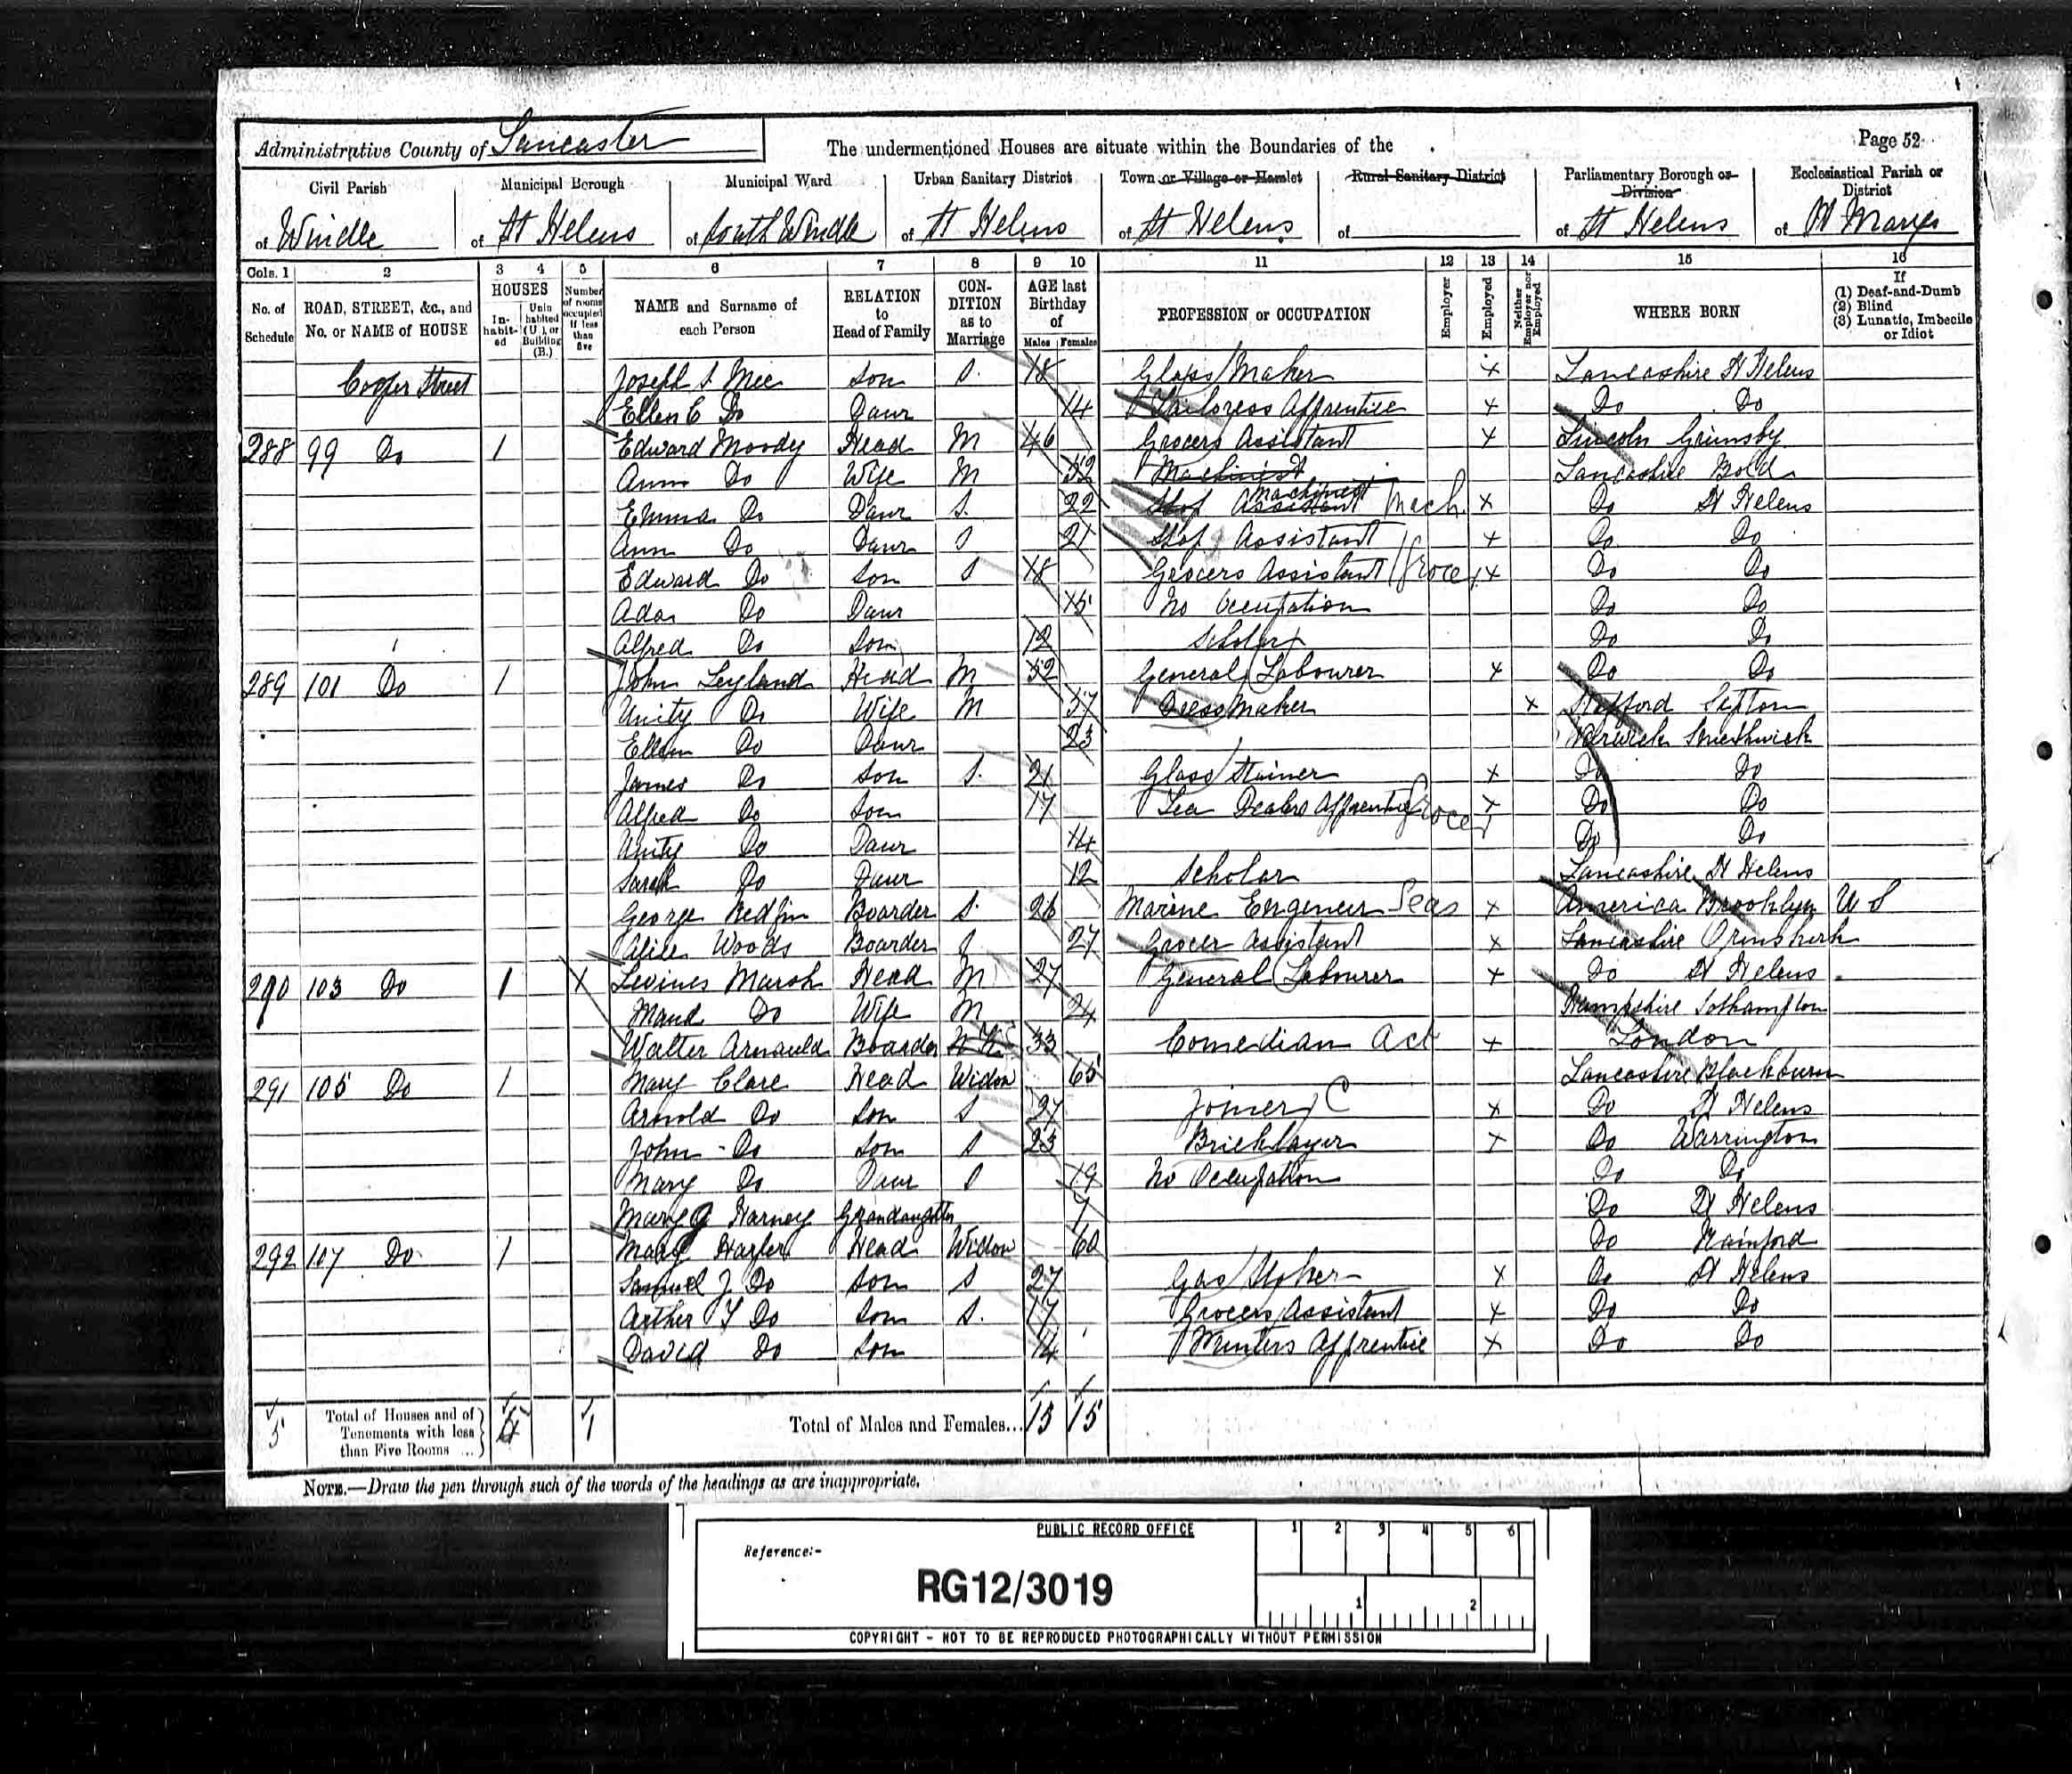 Administrative County of Lancaster
The undermentioned Houses are situate within the Boundaries of the
Page 52
Civil Parish of Windle
Municipal Borough of St Helens
Municipal Ward of South Windle
Urban Sanitary District of St Helens
Town or Village or Hamlet of St Helens
Rural Sanitary District of
Parliamentary Borough or Division of St Helens
Ecclesiastical Parish or District of St Marys
Cols. 1 2 3 4 5 6 7 8 9 10 11 12 13 14 15 16
No. of Schedule
ROAD, STREET, &c., and No. or NAME of HOUSE
HOUSES
In-habit-ed
Unin habited (U.), or Building (B.)
Number of rooms occupied if less than five
NAME and Surname of each Person
RELATION to Head of Family
CON-DITION as to Marriage
AGE last Birthday of
Males Females
PROFESSION or OCCUPATION
Employer
Employed
Neither Employer nor Employed
WHERE BORN
If
(1) Deaf-and-Dumb
(2) Blind
(3) Lunatic, Imbecile or Idiot
Cooper Street Joseph S. Mee Son S. 18 Glass Maker x Lancashire St Helens
Ellen E Do Daur 14 Tailoress Apprentice x Do Do
288 99 Do 1 Edward Moody Head M 46 Grocers Assistant x Lincoln Grimsby
Ann Do Wife M 52 Machinist Lancashire Bold
Emma Do Daur S. 22 Shop Assistant Machinist Mach. x Do St Helens
Ann Do Daur S 21 Shop Assistant x Do Do
Edward Do Son S 18 Grocers Assistant Grocer x Do Do
Ada Do Daur 15 No Occupation Do Do
Alfred Do Son 12 Scholar Do Do
289 101 Do 1 John Leyland Head M 52 General Labourer x Do Do
Unity Do Wife M 57 Dress Maker x Stafford Sefton
Ellen Do Daur 23 Warwick Smethwick
James Do Son S. 21 Glass Stainer x Do Do
Alfred Do Son 17 Tea Dealers Apprentice Grocer x Do Do
Unity Do Daur 14 Do Do
Sarah Do Daur 12 Scholar Lancashire St Helens
George Boarder S. 26 Marine Engeneer Seas x America Brooklyn U S
Alice Woods Boarder S 27 Grocer Assistant x Lancashire Ormskirk
290 103 Do 1 X Marsh Head M 27 General Labourer x Do St Helens
Maud Do Wife M 24 Hampshire Sothampton
Walter Arnauld Boarder 33 Comedian Act x London
291 105 Do 1 Mary Clare Head Widow 65 Lancashire Blackburn
Arnold Do Son S 27 Joiner C x Do St Helens
John Do Son S 23 Bricklayer x Do Warrington
Mary Do Daur S 19 No Occupation Do Do
Mary Harney Grandaughter 7 Do St Helens
292 107 Do 1 Mary Head Widow 60 Do Rainford
Samuel J Do Son S 27 Gas Stoker x Do St Helens
Arther T Do Son S. 17 Grocers Assistant x Do Do
David Do Son 14 Apprentice x Do Do
5 Total of Houses and of Tenements with less than Five Rooms ... 1 Total of Males and Females... 15 15
NOTE.—Draw the pen through such of the words of the headings as are inappropriate.
PUBLIC RECORD OFFICE
Reference:-
RG12/3019
1 2 3 4 5 6
1 2
COPYRIGHT - NOT TO BE REPRODUCED PHOTOGRAPHICALLY WITHOUT PERMISSION